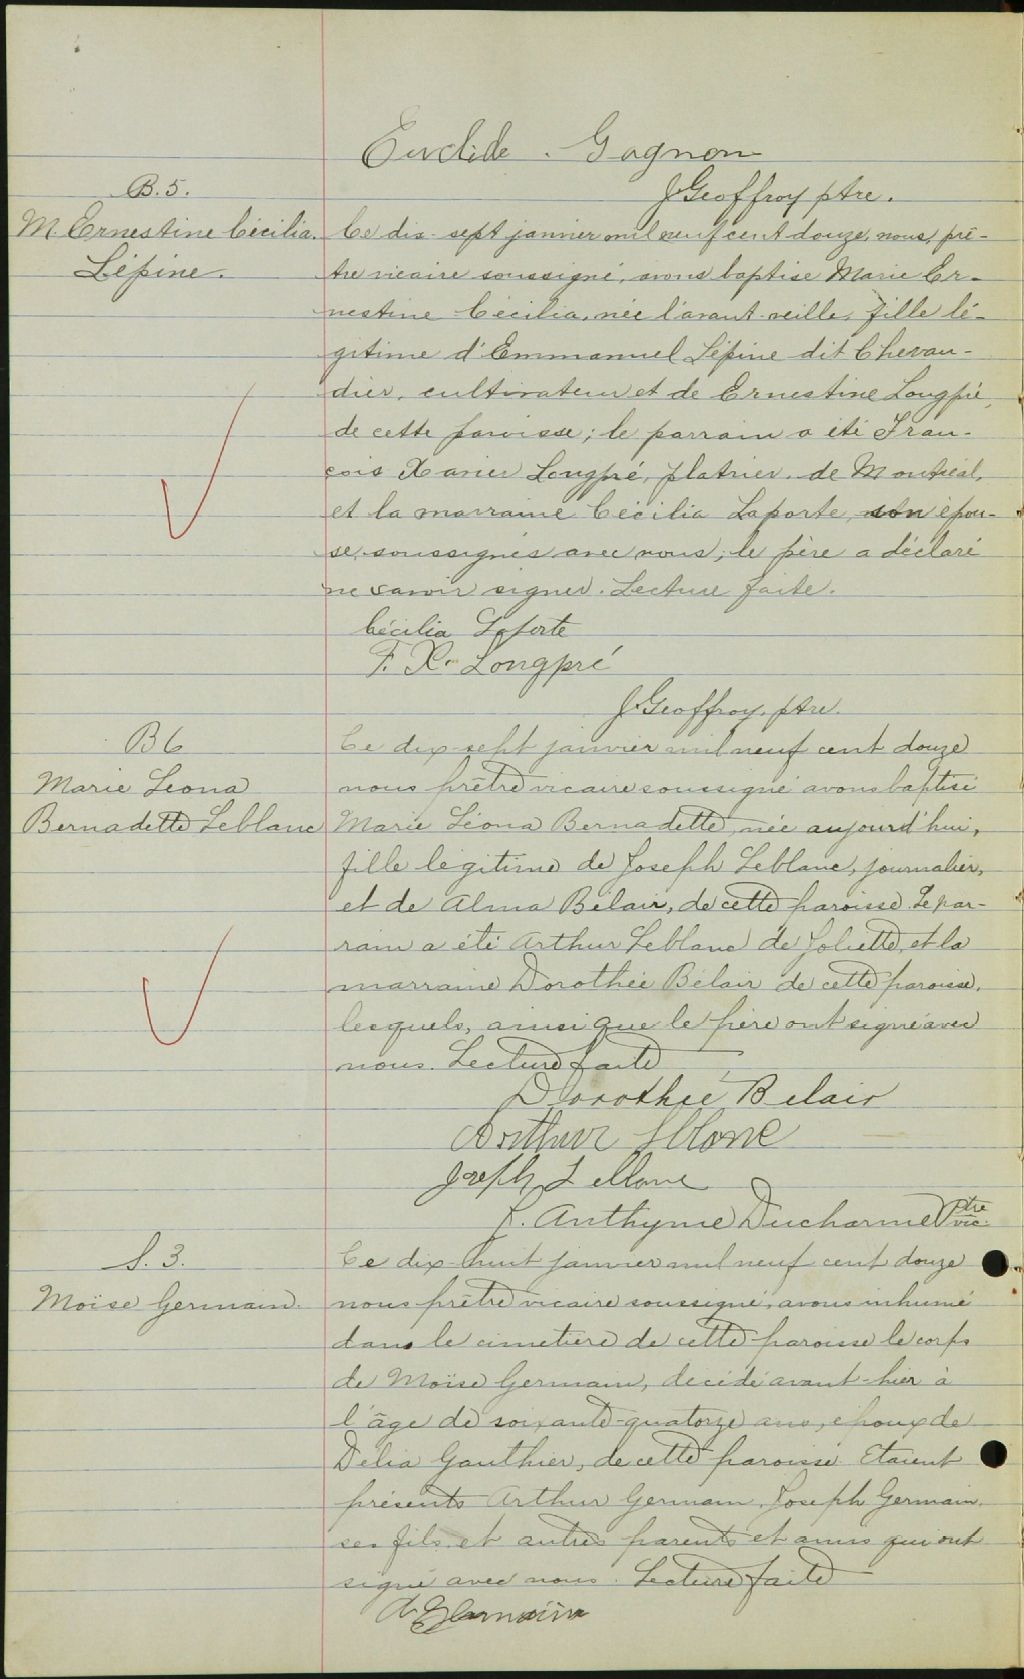 Euclide Gagnon
J Geoffroy ptre.
B. 5.
M Ernestine Cécilia
Lépine.
Ce dix-sept janvier mil neuf cent douze, nous, prê-
tre vicaire soussigné, avons baptisé Marie Er-
nestine Cécilia, née l'avant-veille, fille lé-
gitime d'Emmanuel Lépine dit Chevau-
dier, cultivateur et de Ernestine Longpré,
de cette paroisse; le parrain a été Fran-
çois Xavier Longpré, platrier, de Montréal,
et la marraine Cécilia Laporte, son épou-
se, soussignés avec nous; le père a déclaré
ne savoir signer. Lecture faite.
Cécilia Laporte
F. X. Longpré
J Geoffroy, ptre.
B 6
Marie Leona
Bernadette Leblanc
Ce dix-sept janvier mil neuf cent douze
nous prêtre vicaire soussigné avons baptisé
Marie Léona Bernadette, née aujourd'hui,
fille légitime de Joseph Leblanc, journalier,
et de Alma Bélair, de cette paroisse. Le par-
rain a été Arthur Leblanc de Joliette, et la
marraine Dorothée Bélair de cette paroisse,
lesquels, ainsi que le père ont signé avec
nous. Lecture faite
Dorothée Belair
Arthur Lblanc
Joseph Leblanc
J. Anthyme Ducharme Ptre vic.
S. 3.
Moïse Germain.
Ce dix-huit janvier mil neuf cent douze
nous prêtre vicaire soussigné, avons inhumé
dans le cimetière de cette paroisse le corps
de Moïse Germain, décédé avant-hier à
l'âge de soixante-quatorze ans, époux de
Délia Gauthier, de cette paroisse. Etaient
présents Arthur Germain, Joseph Germain,
ses fils et autres parents et amis qui ont
signé avec nous. Lecture faite
A Germain